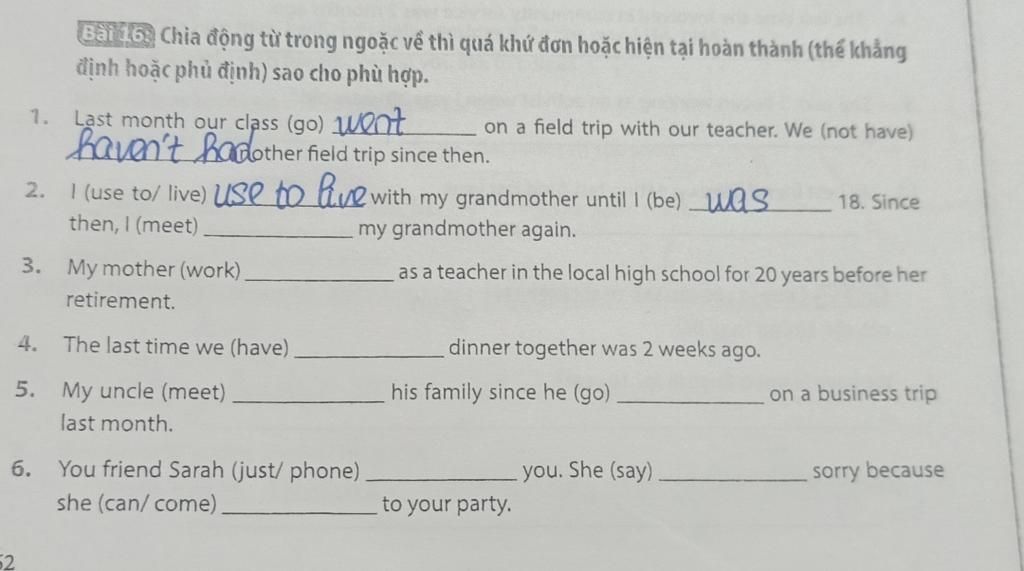 Bài 16: Chia động từ trong ngoặc về thì quá khứ đơn hoặc hiện tại hoàn thành (thể khẳng
định hoặc phủ định) sao cho phù hợp.
1. Last month our class (go) went on a field trip with our teacher. We (not have)
haven't had other field trip since then.
2. I (use to/ live) use to live with my grandmother until I (be) was 18. Since
then, I (meet) ____________ my grandmother again.
3. My mother (work) ____________ as a teacher in the local high school for 20 years before her
retirement.
4. The last time we (have) ____________ dinner together was 2 weeks ago.
5. My uncle (meet) ____________ his family since he (go) ____________ on a business trip
last month.
6. You friend Sarah (just/ phone) ____________ you. She (say) ____________ sorry because
she (can/ come) ____________ to your party.
52